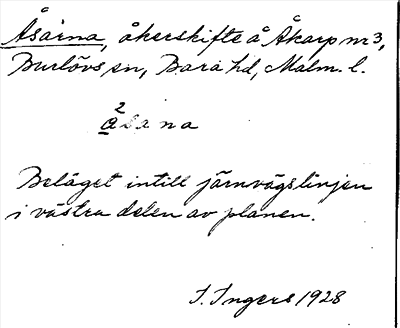 Åsarna, åkerskifte å Åkarp nr 3,
Burlövs sn, Bara hd, Malm. l.
2
åsana
Beläget intill järnvägslinjen
i västra delen av planen.
I. Ingers 1928